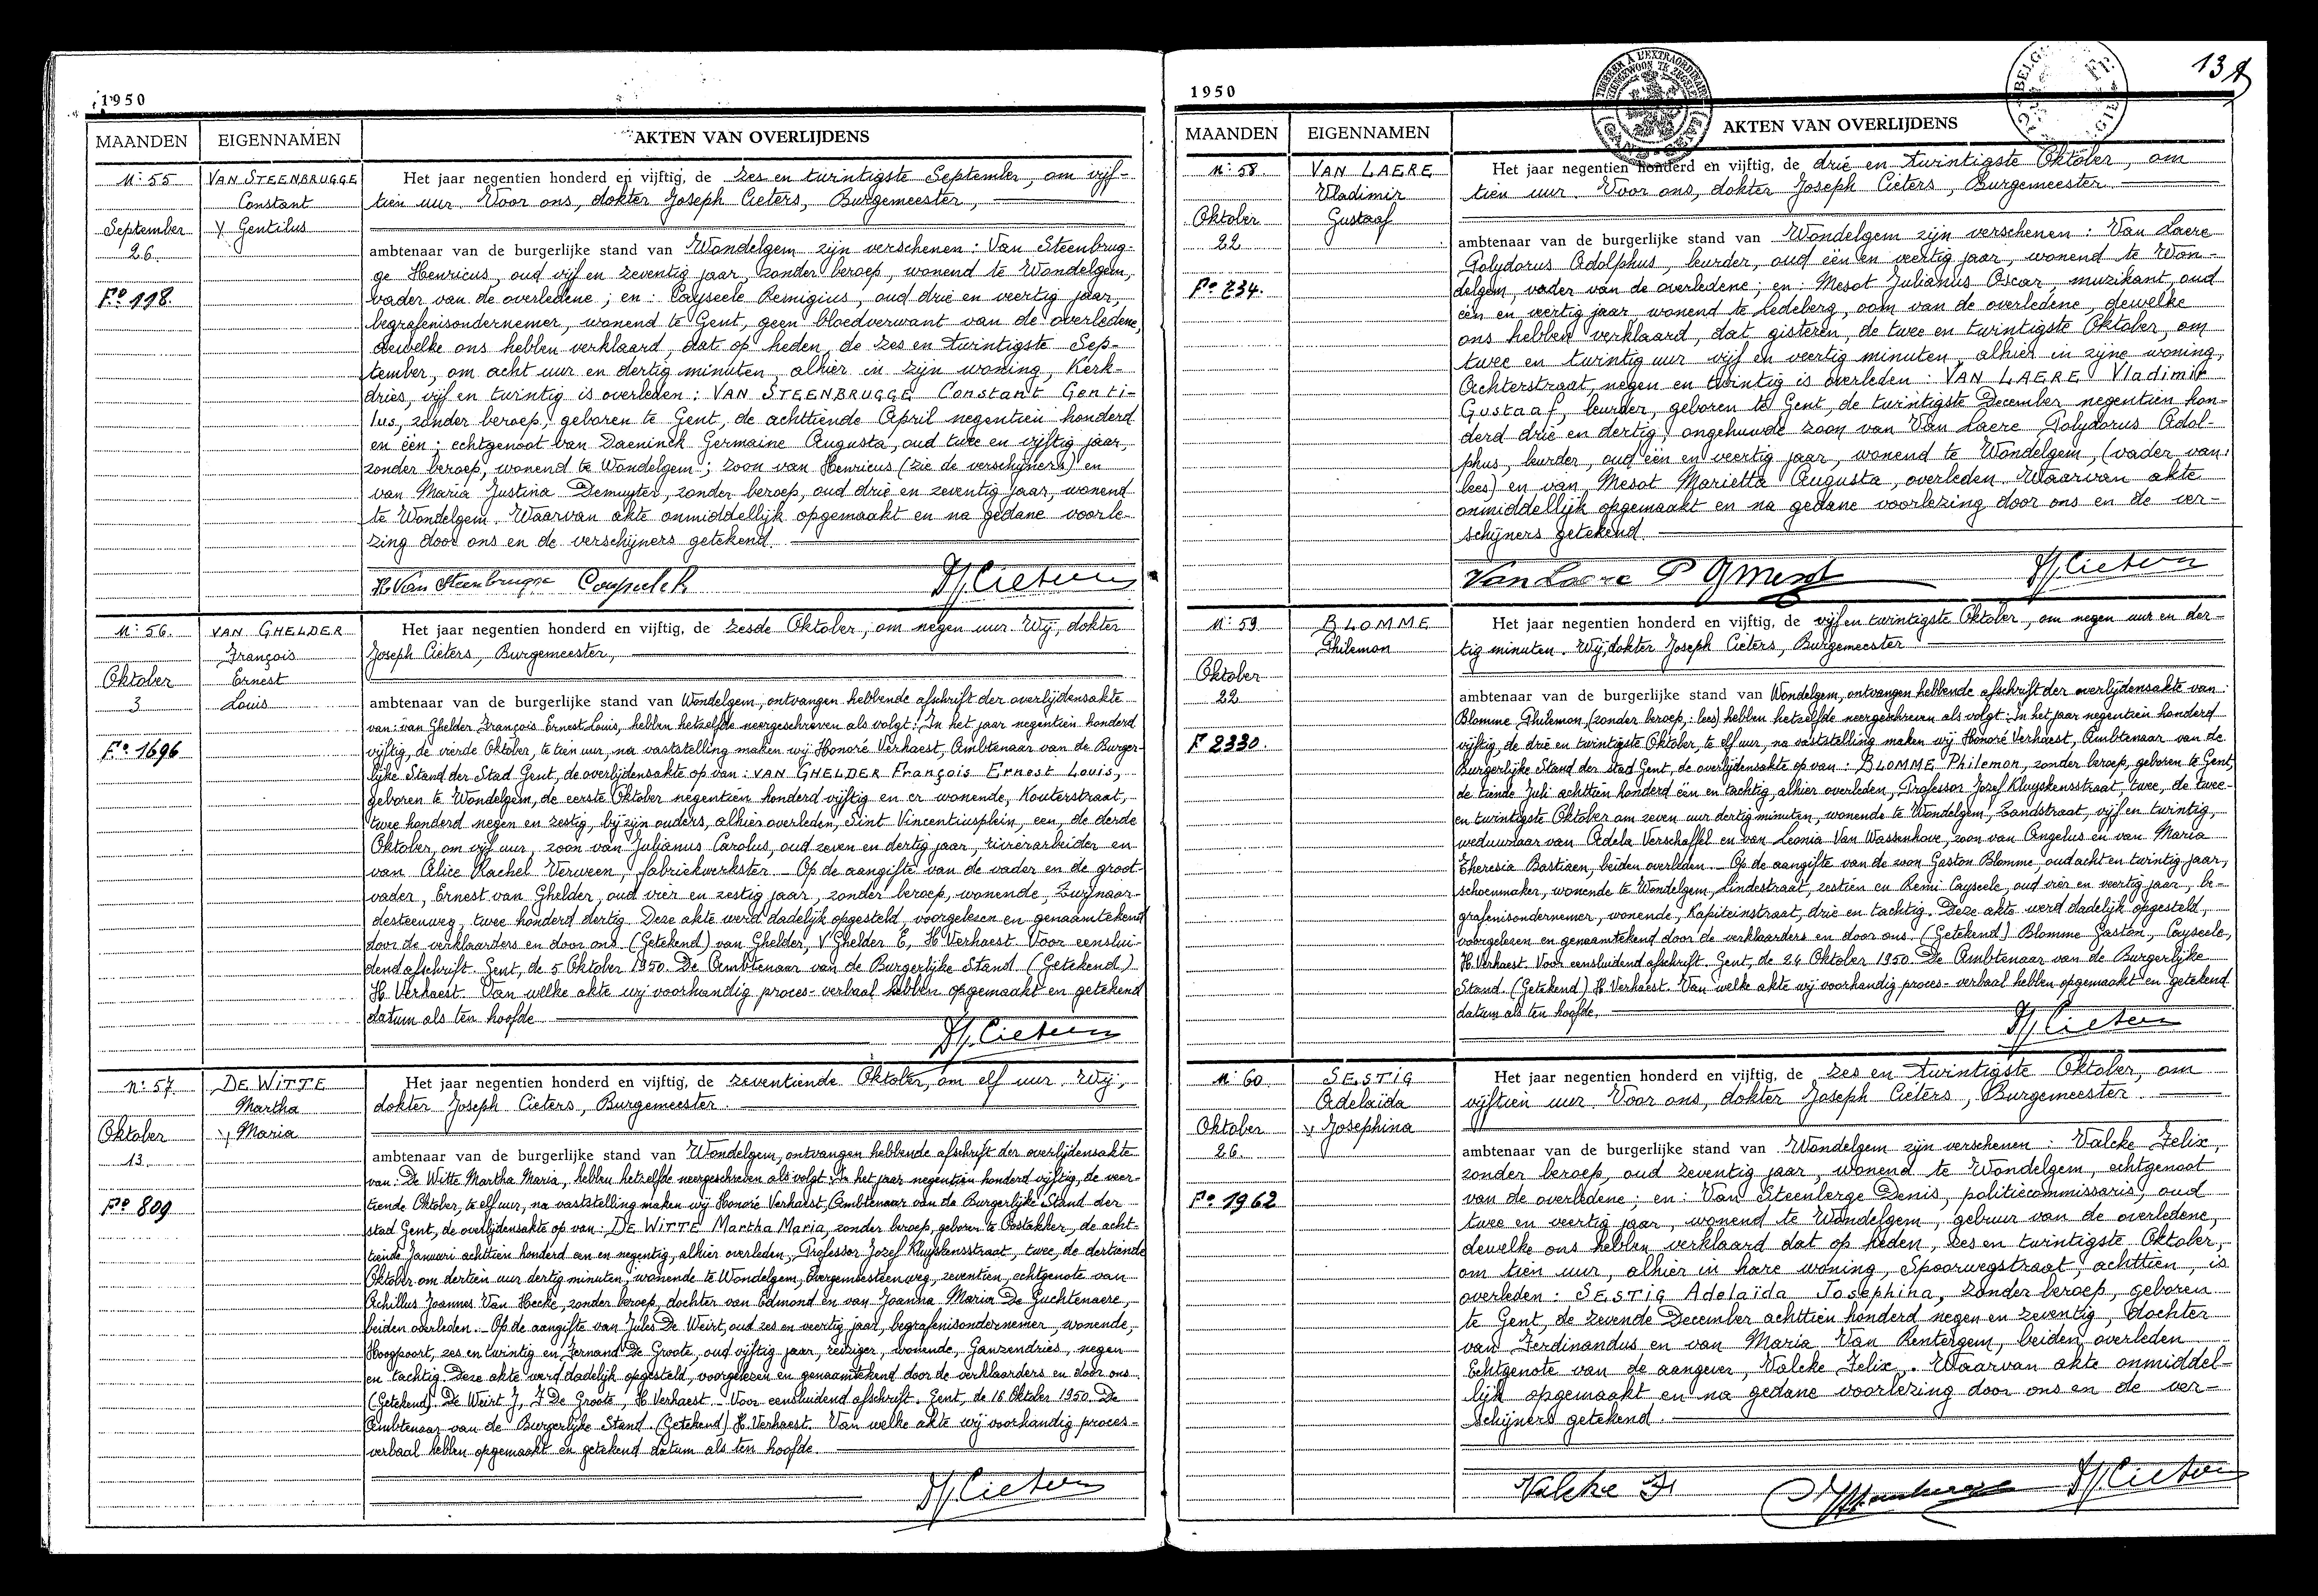 1950
MAANDEN EIGENNAMEN AKTEN VAN OVERLIJDENS
N: 55
September
26.
Fº 118.
VAN STEENBRUGGE
Constant
Gentilus
Het jaar negentien honderd en vijftig, de zes en twintigste September, om vijf-
tien uur. Voor ons, dokter Joseph Cieters, Burgemeester,
ambtenaar van de burgerlijke stand van Wondelgem zijn verschenen : Van Steenbrug-
ge Henricus, oud vijf en zeventig jaar, zonder beroep, wonend te Wondelgem,
vader van de overledene ; en : Cayseele Remigius, oud drie en veertig jaar,
begrafenisondernemer, wonend te Gent, geen bloedverwant van de overledene,
dewelke ons hebben verklaard, dat op heden, de zes en twintigste Sep-
tember, om acht uur en dertig minuten, alhier in zijn woning, Kerk-
dries, vijf en twintig is overleden : VAN STEENBRUGGE Constant Genti-
lus, zonder beroep, geboren te Gent, de achttiende April negentien honderd
en één ; echtgenoot van Daeninck Germaine Augusta, oud twee en vijftig jaar,
zonder beroep, wonend te Wondelgem ; zoon van Henricus (zie de verschijners) en
van Maria Justina Demuyter, zonder beroep, oud drie en zeventig jaar, wonend
te Wondelgem. Waarvan akte onmiddellijk opgemaakt en na gedane voorle-
zing door ons en de verschijners getekend.
H. Van Steenbrugge
N: 56.
Oktober
3
Fº 1696
VAN GHELDER
François
Ernest
Louis
Het jaar negentien honderd en vijftig, de zesde Oktober, om negen uur. Wij, dokter
Joseph Cieters, Burgemeester,
ambtenaar van de burgerlijke stand van Wondelgem, ontvangen hebbende afschrift der overlijdensakte
van : van Ghelder François Ernest Louis, hebben hetzelfde neergeschreven als volgt : In het jaar negentien honderd
vijftig, de vierde Oktober, te tien uur, na vaststelling maken wij Honoré Verhaest, Ambtenaar van de Burger-
lijke Stand der Stad Gent, de overlijdensakte op van : VAN GHELDER François Ernest Louis,
geboren te Wondelgem, de eerste Oktober negentien honderd vijftig en er wonende, Kouterstraat,
twee honderd negen en zestig, bij zijn ouders, alhier overleden, Sint Vincentiusplein, een, de derde
Oktober, om vijf uur, zoon van Julianus Carolus, oud zeven en dertig jaar, rivierarbeider en
van Alice Rachel Verween, fabriekwerkster. Op de aangifte van de vader en de groot-
vader, Ernest van Ghelder, oud vier en zestig jaar, zonder beroep, wonende, Zwijnaar-
desteenweg, twee honderd dertig. Deze akte werd dadelijk opgesteld, voorgelezen en genaamtekend
door de verklaarders en door ons. (Getekend) van Ghelder, V Ghelder E, H Verhaest. Voor eenslui-
dend afschrift. Gent, de 5 Oktober 1950. De Ambtenaar van de Burgerlijke Stand. (Getekend)
H. Verhaest. Van welke akte wij voorhandig proces-verbaal hebben opgemaakt en getekend
datum als ten hoofde.
N: 57.
Oktober
13.
Fº 809
DE WITTE
Martha
Maria
Het jaar negentien honderd en vijftig, de zeventiende Oktober, om elf uur. Wij,
dokter Joseph Cieters, Burgemeester.
ambtenaar van de burgerlijke stand van Wondelgem, ontvangen hebbende afschrift der overlijdensakte
van : De Witte Martha Maria, hebben hetzelfde neergeschreven als volgt : In het jaar negentien honderd vijftig, de veer-
tiende Oktober, te elf uur, na vaststelling maken wij Honoré Verhaest, Ambtenaar van de Burgerlijke Stand der
stad Gent, de overlijdensakte op van : DE WITTE Martha Maria, zonder beroep, geboren te Oostakker, de acht-
tiende Januari achttien honderd een en negentig, alhier overleden, Professor Jozef Kluyskensstraat, twee, de dertiende
Oktober om dertien uur dertig minuten, wonende te Wondelgem, Evergemsesteenweg, zeventien, echtgenote van
Achillus Joannes Van Hecke, zonder beroep, dochter van Edmond en van Joanna Maria De Guchtenaere,
beiden overleden. Op de aangifte van Jules De Weirt, oud zes en veertig jaar, begrafenisondernemer, wonende,
Hoogpoort, zes en twintig en Fernand De Groote, oud vijftig jaar, reiziger, wonende, Ganzendries, negen
en tachtig. Deze akte werd dadelijk opgesteld, voorgelezen en genaamtekend door de verklaarders en door ons.
(Getekend) De Weirt J, F De Groote, H Verhaest. Voor eensluidend afschrift. Gent, de 16 Oktober 1950. De
Ambtenaar van de Burgerlijke Stand. (Getekend) H. Verhaest. Van welke akte wij voorhandig proces-
verbaal hebben opgemaakt en getekend datum als ten hoofde.
1950
MAANDEN EIGENNAMEN AKTEN VAN OVERLIJDENS
N: 58.
Oktober
22
Fº 234.
VAN LAERE
Vladimir
Gustaaf
Het jaar negentien honderd en vijftig, de drie en twintigste Oktober, om
tien uur. Voor ons, dokter Joseph Cieters, Burgemeester.
ambtenaar van de burgerlijke stand van Wondelgem zijn verschenen : Van Laere
Polydorus Adolphus, leurder, oud één en veertig jaar, wonend te Won-
delgem, vader van de overledene ; en : Mesot Julianus Oscar, muzikant, oud
één en veertig jaar wonend te Ledeberg, oom van de overledene, dewelke
ons hebben verklaard, dat gisteren, de twee en twintigste Oktober, om
twee en twintig uur vijf en veertig minuten, alhier in zijne woning,
Achterstraat, negen en twintig is overleden : VAN LAERE Vladimir
Gustaaf, leurder, geboren te Gent, de twintigste December negentien hon-
derd drie en dertig, ongehuwde zoon van Van Laere Polydorus Adol-
phus, leurder, oud één en veertig jaar, wonend te Wondelgem, (vader van:
lees) en van Mesot Marietta Augusta, overleden. Waarvan akte
onmiddellijk opgemaakt en na gedane voorlezing door ons en de ver-
schijners getekend.
Van Laere P
N: 59
Oktober
22
F 2330.
BLOMME
Philemon
Het jaar negentien honderd en vijftig, de vijf en twintigste Oktober, om negen uur en der-
tig minuten. Wij, dokter Joseph Cieters, Burgemeester
ambtenaar van de burgerlijke stand van Wondelgem, ontvangen hebbende afschrift der overlijdensakte van :
Blomme Philemon, (zonder beroep, : lees) hebben hetzelfde neergeschreven als volgt : In het jaar negentien honderd
vijftig, de drie en twintigste Oktober, te elf uur, na vaststelling maken wij Honoré Verhaest, Ambtenaar van de
Burgerlijke Stand der stad Gent, de overlijdensakte op van : BLOMME Philemon, zonder beroep, geboren te Gent,
de tiende Juli achttien honderd één en tachtig, alhier overleden, Professor Jozef Kluyskensstraat, twee, de twee-
en twintigste Oktober om zeven uur dertig minuten, wonende te Wondelgem, Zandstraat, vijf en twintig,
weduwnaar van Adela Verschaffel en van Leonia Van Wassenhove, zoon van Angelus en van Maria
Theresia Bastiaen, beiden overleden. Op de aangifte van de zoon Gaston Blomme, oud acht en twintig jaar,
schoenmaker, wonende te Wondelgem, Lindestraat, zestien en Remi Cayseele, oud vier en veertig jaar, be-
grafenisondernemer, wonende, Kapiteinstraat, drie en tachtig. Deze akte werd dadelijk opgesteld,
voorgelezen en genaamtekend door de verklaarders en door ons. (Getekend) Blomme Gaston, Cayseele,
H. Verhaest. Voor eensluidend afschrift. Gent, de 24 Oktober 1950. De Ambtenaar van de Burgerlijke
Stand. (Getekend) H Verhaest. Van welke akte wij voorhandig proces-verbaal hebben opgemaakt en getekend
datum als ten hoofde.
N: 60
Oktober
26
Fº 1962
SESTIG
Adelaïda
Josephina
Het jaar negentien honderd en vijftig, de zes en twintigste Oktober, om
vijftien uur. Voor ons, dokter Joseph Cieters, Burgemeester.
ambtenaar van de burgerlijke stand van Wondelgem zijn verschenen : Valcke Felix,
zonder beroep, oud zeventig jaar, wonend te Wondelgem, echtgenoot
van de overledene ; en : Van Steenberge Denis, politiecommissaris, oud
twee en veertig jaar, wonend te Wondelgem, gebuur van de overledene,
dewelke ons hebben verklaard dat op heden, zes en twintigste Oktober,
om tien uur, alhier in hare woning, Spoorwegstraat, achttien, is
overleden : SESTIG Adelaïda Josephina, zonder beroep, geboren
te Gent, de zevende December achttien honderd negen en zeventig, dochter
van Ferdinandus en van Maria Van Rentergem, beiden overleden
Echtgenote van de aangever, Valcke Felix. Waarvan akte onmiddel-
lijk opgemaakt en na gedane voorlezing door ons en de ver-
schijners getekend.
Valcke F